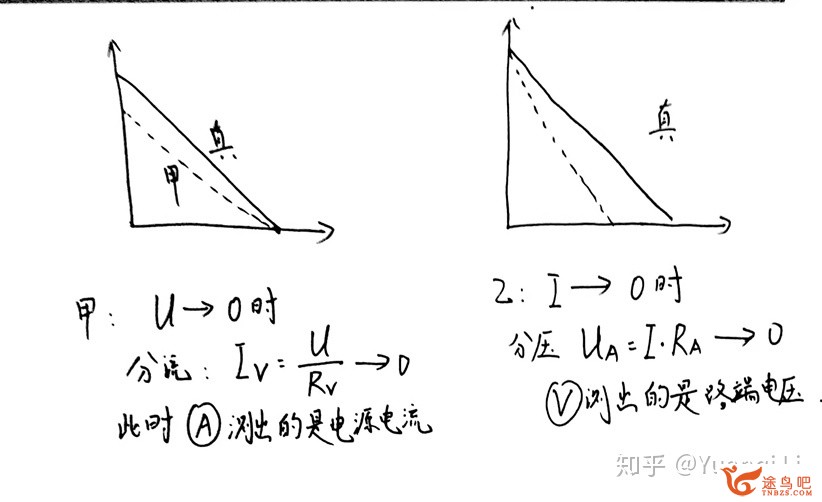 真
甲
真
甲： U → 0时
分流： I_V = U/R_V → 0
此时 Ⓐ 测出的是电源电流
乙： I → 0时
分压 U_A = I·R_A → 0
Ⓥ 测出的是路端电压.
知乎
途鸟吧
TNBZS.COM